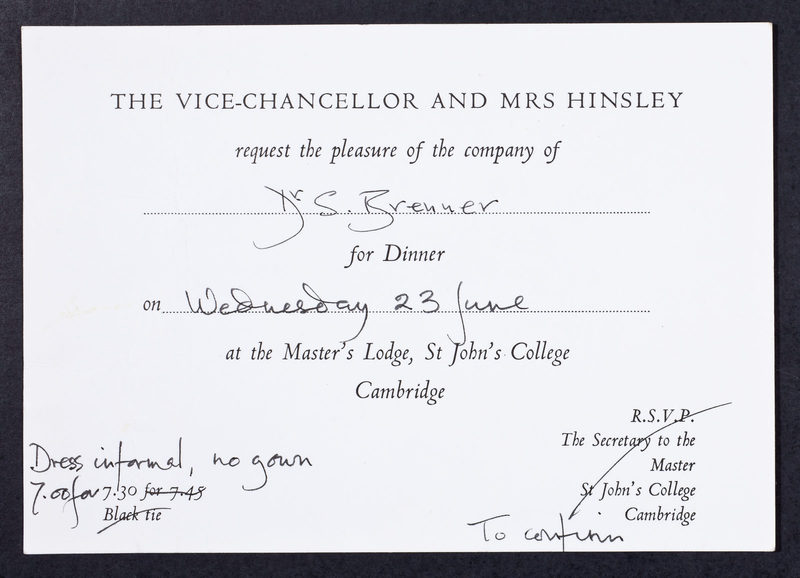 THE VICE-CHANCELLOR AND MRS HINSLEY
request the pleasure of the company of
Dr S. Brenner
for Dinner
on Wednesday 23 June
at the Master's Lodge, St John's College
Cambridge
R.S.V.P.
The Secretary to the
Master
St John's College
Cambridge
To confirm
Dress informal, no gown
7.00 for 7.30 for 7.45
Black tie